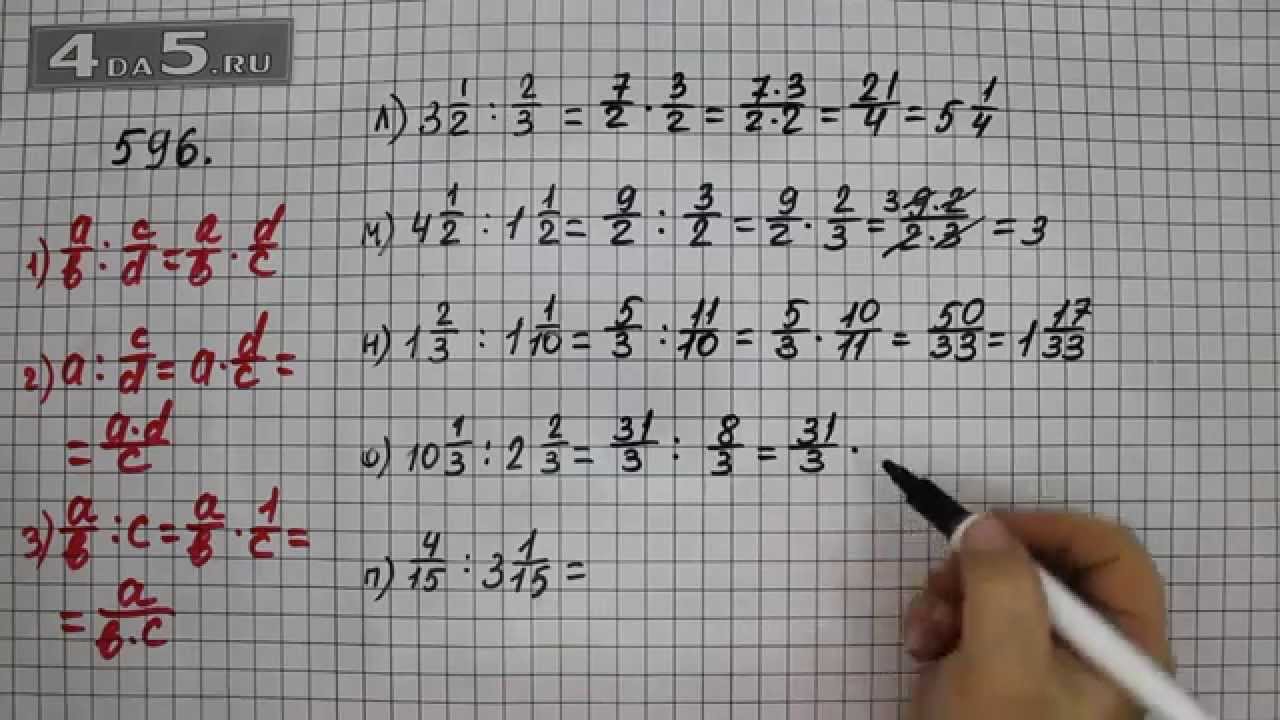 4DA5.RU
596.
1) a/в : c/d = a/в · d/c
2) a : c/d = a · d/c =
= a·d/c
3) a/в : c = a/в · 1/c =
= a/в·c
л) 3 1/2 : 2/3 = 7/2 · 3/2 = 7·3/2·2 = 21/4 = 5 1/4
м) 4 1/2 : 1 1/2 = 9/2 : 3/2 = 9/2 · 2/3 = 3 9·2/2·3 = 3
н) 1 2/3 : 1 1/10 = 5/3 : 11/10 = 5/3 · 10/11 = 50/33 = 1 17/33
о) 10 1/3 : 2 2/3 = 31/3 : 8/3 = 31/3 ·
п) 4/15 : 3 1/15 =